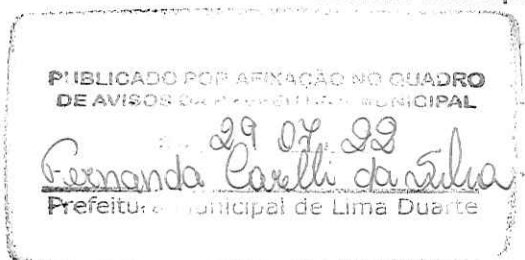 PUBLICADO POR AFIXAÇÃO NO QUADRO
DE AVISOS DA PREFEITURA MUNICIPAL
29 07 22
Fernanda Carelli da Silva
Prefeitura Municipal de Lima Duarte